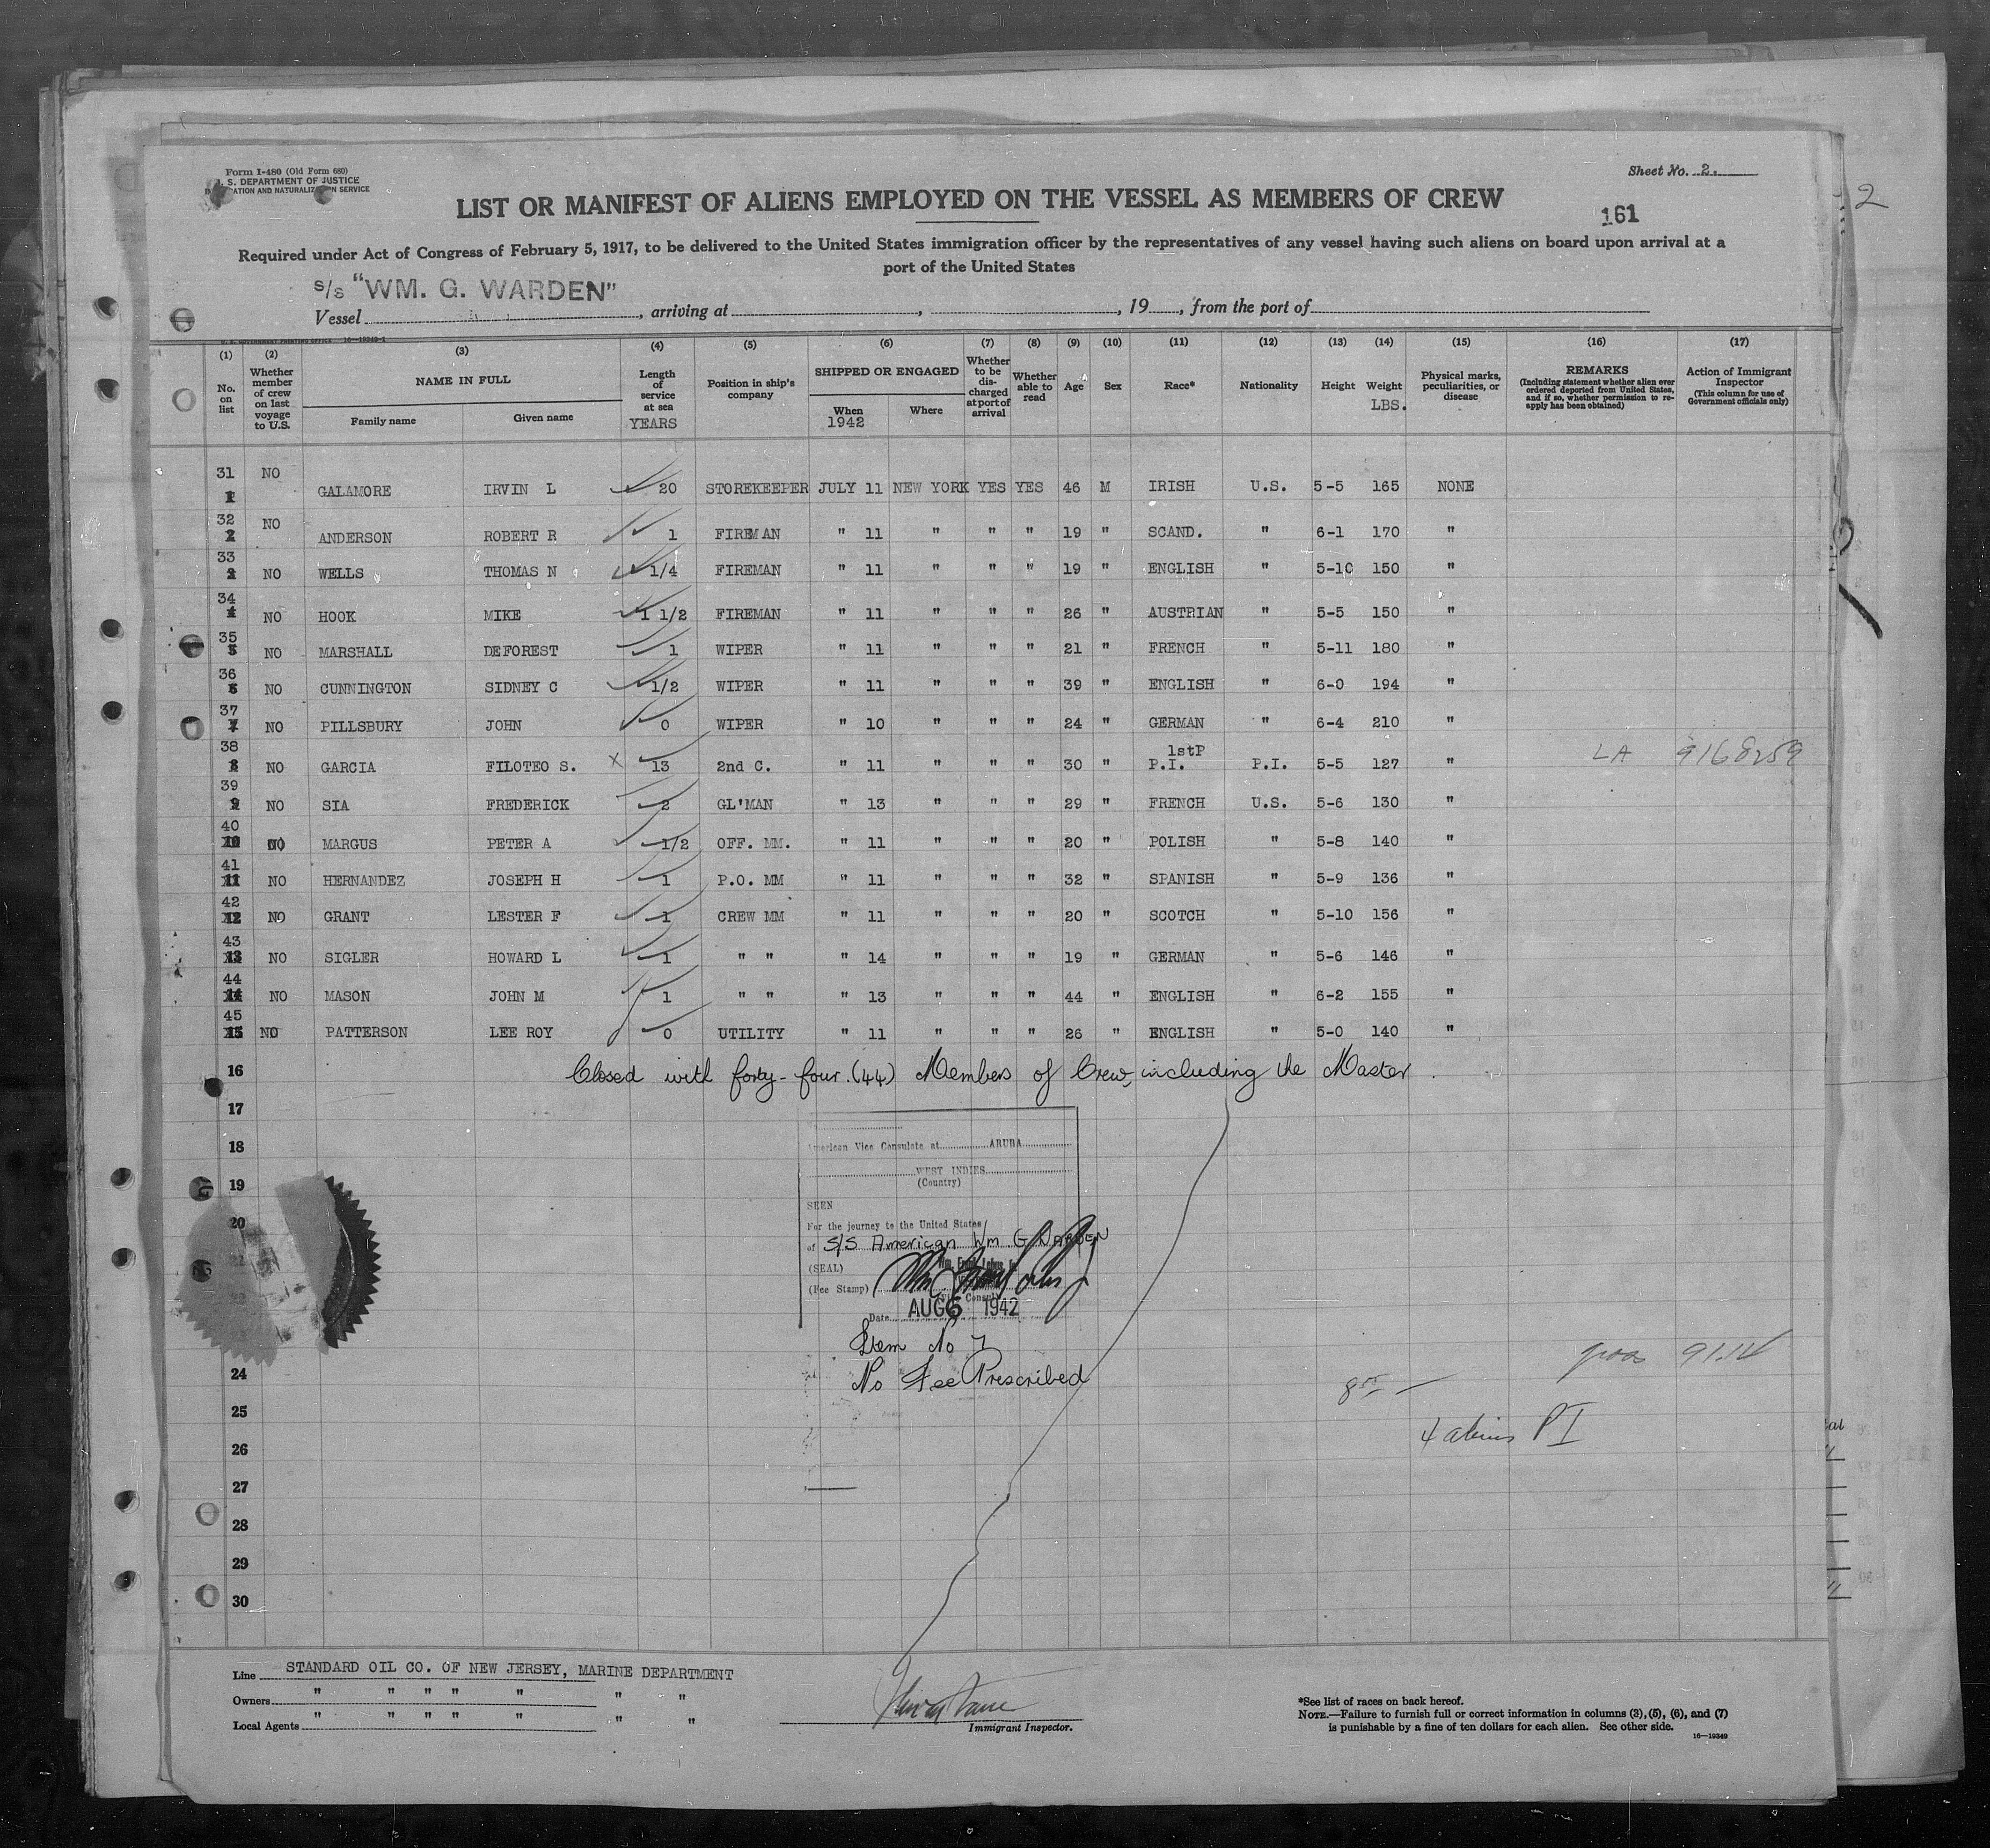 Form I-480 (Old Form 680)
U. S. DEPARTMENT OF JUSTICE
IMMIGRATION AND NATURALIZATION SERVICE
Sheet No. 2.
2
LIST OR MANIFEST OF ALIENS EMPLOYED ON THE VESSEL AS MEMBERS OF CREW
161
Required under Act of Congress of February 5, 1917, to be delivered to the United States immigration officer by the representatives of any vessel having such aliens on board upon arrival at a
port of the United States
S/S "WM. G. WARDEN"
Vessel, arriving at, , 19, from the port of
U. S. GOVERNMENT PRINTING OFFICE 16-19349-1
(1) (2) (3) (4) (5) (6) (7) (8) (9) (10) (11) (12) (13) (14) (15) (16) (17)
No. on list Whether member of crew on last voyage to U.S. NAME IN FULL Family name Given name Length of service at sea YEARS Position in ship's company SHIPPED OR ENGAGED When 1942 Where Whether to be discharged at port of arrival Whether able to read Age Sex Race* Nationality Height Weight LBS. Physical marks, peculiarities, or disease REMARKS (Including statement whether alien ever ordered deported from United States, and if so, whether permission to reapply has been obtained) Action of Immigrant Inspector (This column for use of Government officials only)
31 1 NO GALAMORE IRVIN L 20 STOREKEEPER JULY 11 NEW YORK YES YES 46 M IRISH U.S. 5-5 165 NONE
32 2 NO ANDERSON ROBERT R 1 FIREMAN " 11 " " " 19 " SCAND. " 6-1 170 "
33 3 NO WELLS THOMAS N 1/4 FIREMAN " 11 " " " 19 " ENGLISH " 5-10 150 "
34 4 NO HOOK MIKE 1 1/2 FIREMAN " 11 " " " 26 " AUSTRIAN " 5-5 150 "
35 5 NO MARSHALL DEFOREST 1 WIPER " 11 " " " 21 " FRENCH " 5-11 180 "
36 6 NO CUNNINGTON SIDNEY C 1/2 WIPER " 11 " " " 39 " ENGLISH " 6-0 194 "
37 7 NO PILLSBURY JOHN 0 WIPER " 10 " " " 24 " GERMAN " 6-4 210 "
38 8 NO GARCIA FILOTEO S. X 13 2nd C. " 11 " " " 30 " 1stP P.I. P.I. 5-5 127 " LA 9168259
39 9 NO SIA FREDERICK 2 GL'MAN " 13 " " " 29 " FRENCH U.S. 5-6 130 "
40 10 NO MARGUS PETER A 1/2 OFF. MM. " 11 " " " 20 " POLISH " 5-8 140 "
41 11 NO HERNANDEZ JOSEPH H 1 P.O. MM " 11 " " " 32 " SPANISH " 5-9 136 "
42 12 NO GRANT LESTER F 1 CREW MM " 11 " " " 20 " SCOTCH " 5-10 156 "
43 13 NO SIGLER HOWARD L 1 " " " 14 " " " 19 " GERMAN " 5-6 146 "
44 14 NO MASON JOHN M 1 " " " 13 " " " 44 " ENGLISH " 6-2 155 "
45 15 NO PATTERSON LEE ROY 0 UTILITY " 11 " " " 26 " ENGLISH " 5-0 140 "
16 Closed with forty-four (44) Members of Crew, including the Master.
17
18
19
20
21
22
American Vice Consulate at ARUBA
WEST INDIES
(Country)
SEEN
For the journey to the United States
of S/S American Wm G WARDEN
(SEAL)
(Fee Stamp)
Vice Consul
Date AUG 6 1942
Item No 7
No Fee Prescribed
24
25
26
27
28
29
30
91.14
4 aliens PI
Line STANDARD OIL CO. OF NEW JERSEY, MARINE DEPARTMENT
Owners " " " " " " "
Local Agents " " " " " " "
Immigrant Inspector.
*See list of races on back hereof.
NOTE.—Failure to furnish full or correct information in columns (3), (5), (6), and (7)
is punishable by a fine of ten dollars for each alien. See other side.
16—19349